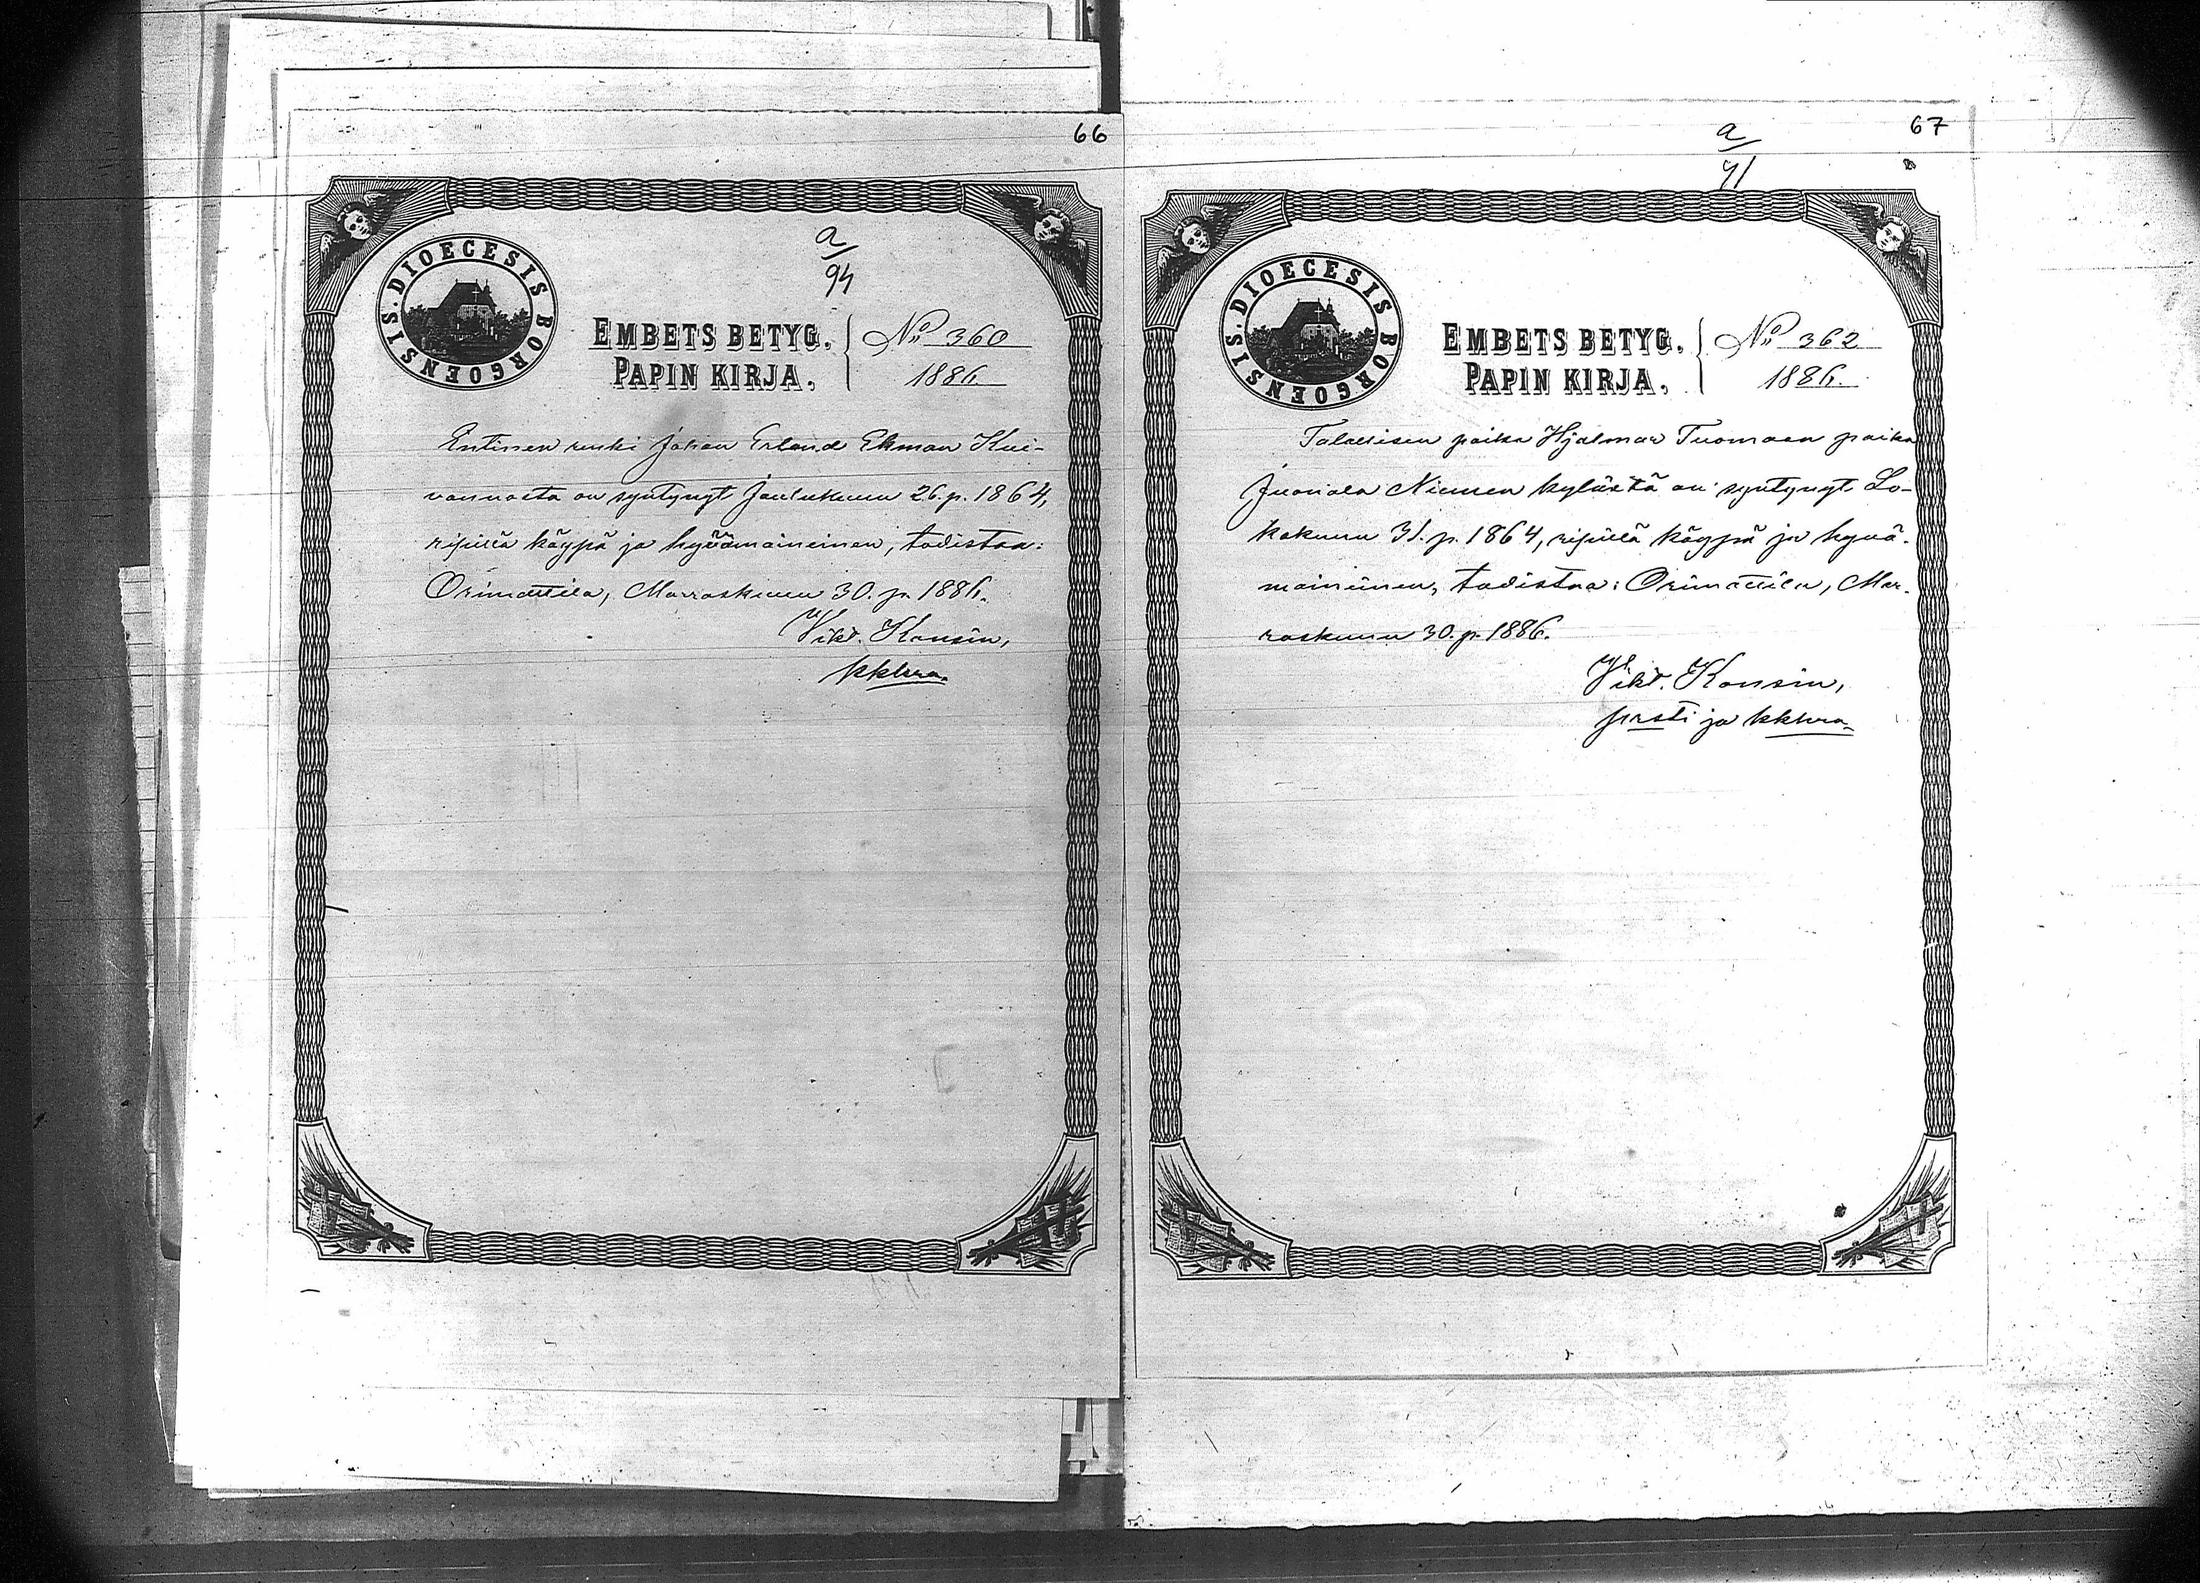 66
a
94
DIOECESIS BORGOENSIS.
EMBETS BETYG.
PAPIN KIRJA.
No 360
1886.
Entinen renki Johan Erland Ekman Kui-
vannosta on syntynyt Joulukuun 26. p. 1864,
ripillä käypä ja hyvämaineinen, todistaa:
Orimattila, Marraskuun 30. p. 1886.
Vikt. Konsin,
kklura.
67
a
41
DIOECESIS BORGOENSIS.
EMBETS BETYG.
PAPIN KIRJA.
No 362
1886.
Talollisen poika Hjalmar Tuomaan poika
Juonola Niemen kylästä on syntynyt Lo-
kakuun 31. p. 1864, ripillä käypä ja hyvä-
maineinen, todistaa: Orimattila, Mar-
raskuun 30. p. 1886.
Vikt. Konsin,
prsti ja kklura.